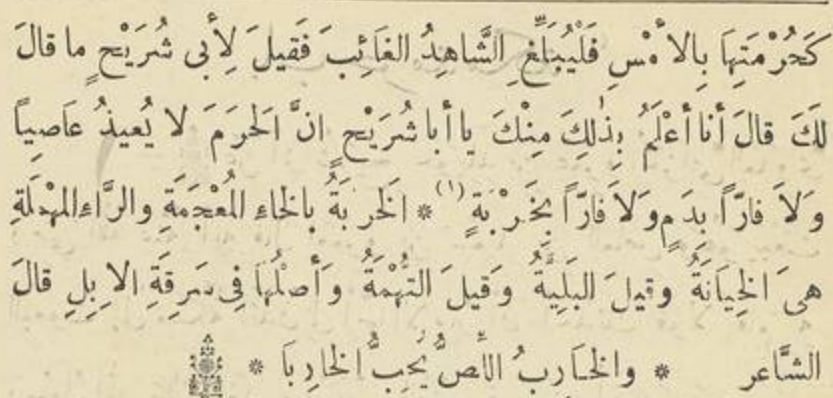 كَحُرْمَتِهَا بِالأَمْسِ فَلْيُبَلِّغِ الشَّاهِدُ الغَائِبَ فَقِيلَ لِأَبِى شُرَيْحٍ ما قالَ
لكَ قالَ أنا أعْلَمُ بِذٰلِكَ مِنْكَ ياأباشُرَيْحٍ انَّ الحَرَمَ لا يُعيذُ عَاصِياً
وَلاَ فارّاً بِدَمٍ وَلاَ فارّاً بِخَرْبَةٍ (١) * الخَرْبَةُ بالخاءِ المُعْجَمَةِ والرَّاءِ المهْمَلَةِ
هىَ الخِيَانَةُ وقيلَ البَلِيَّةُ وَقيلَ التُّهْمَةُ وَأصلُهَا فِى سَرِقَةِ الابِلِ قالَ
الشَّاعر * والخَارِبُ اللِّصُّ يُحِبُّ الخارِبَا *